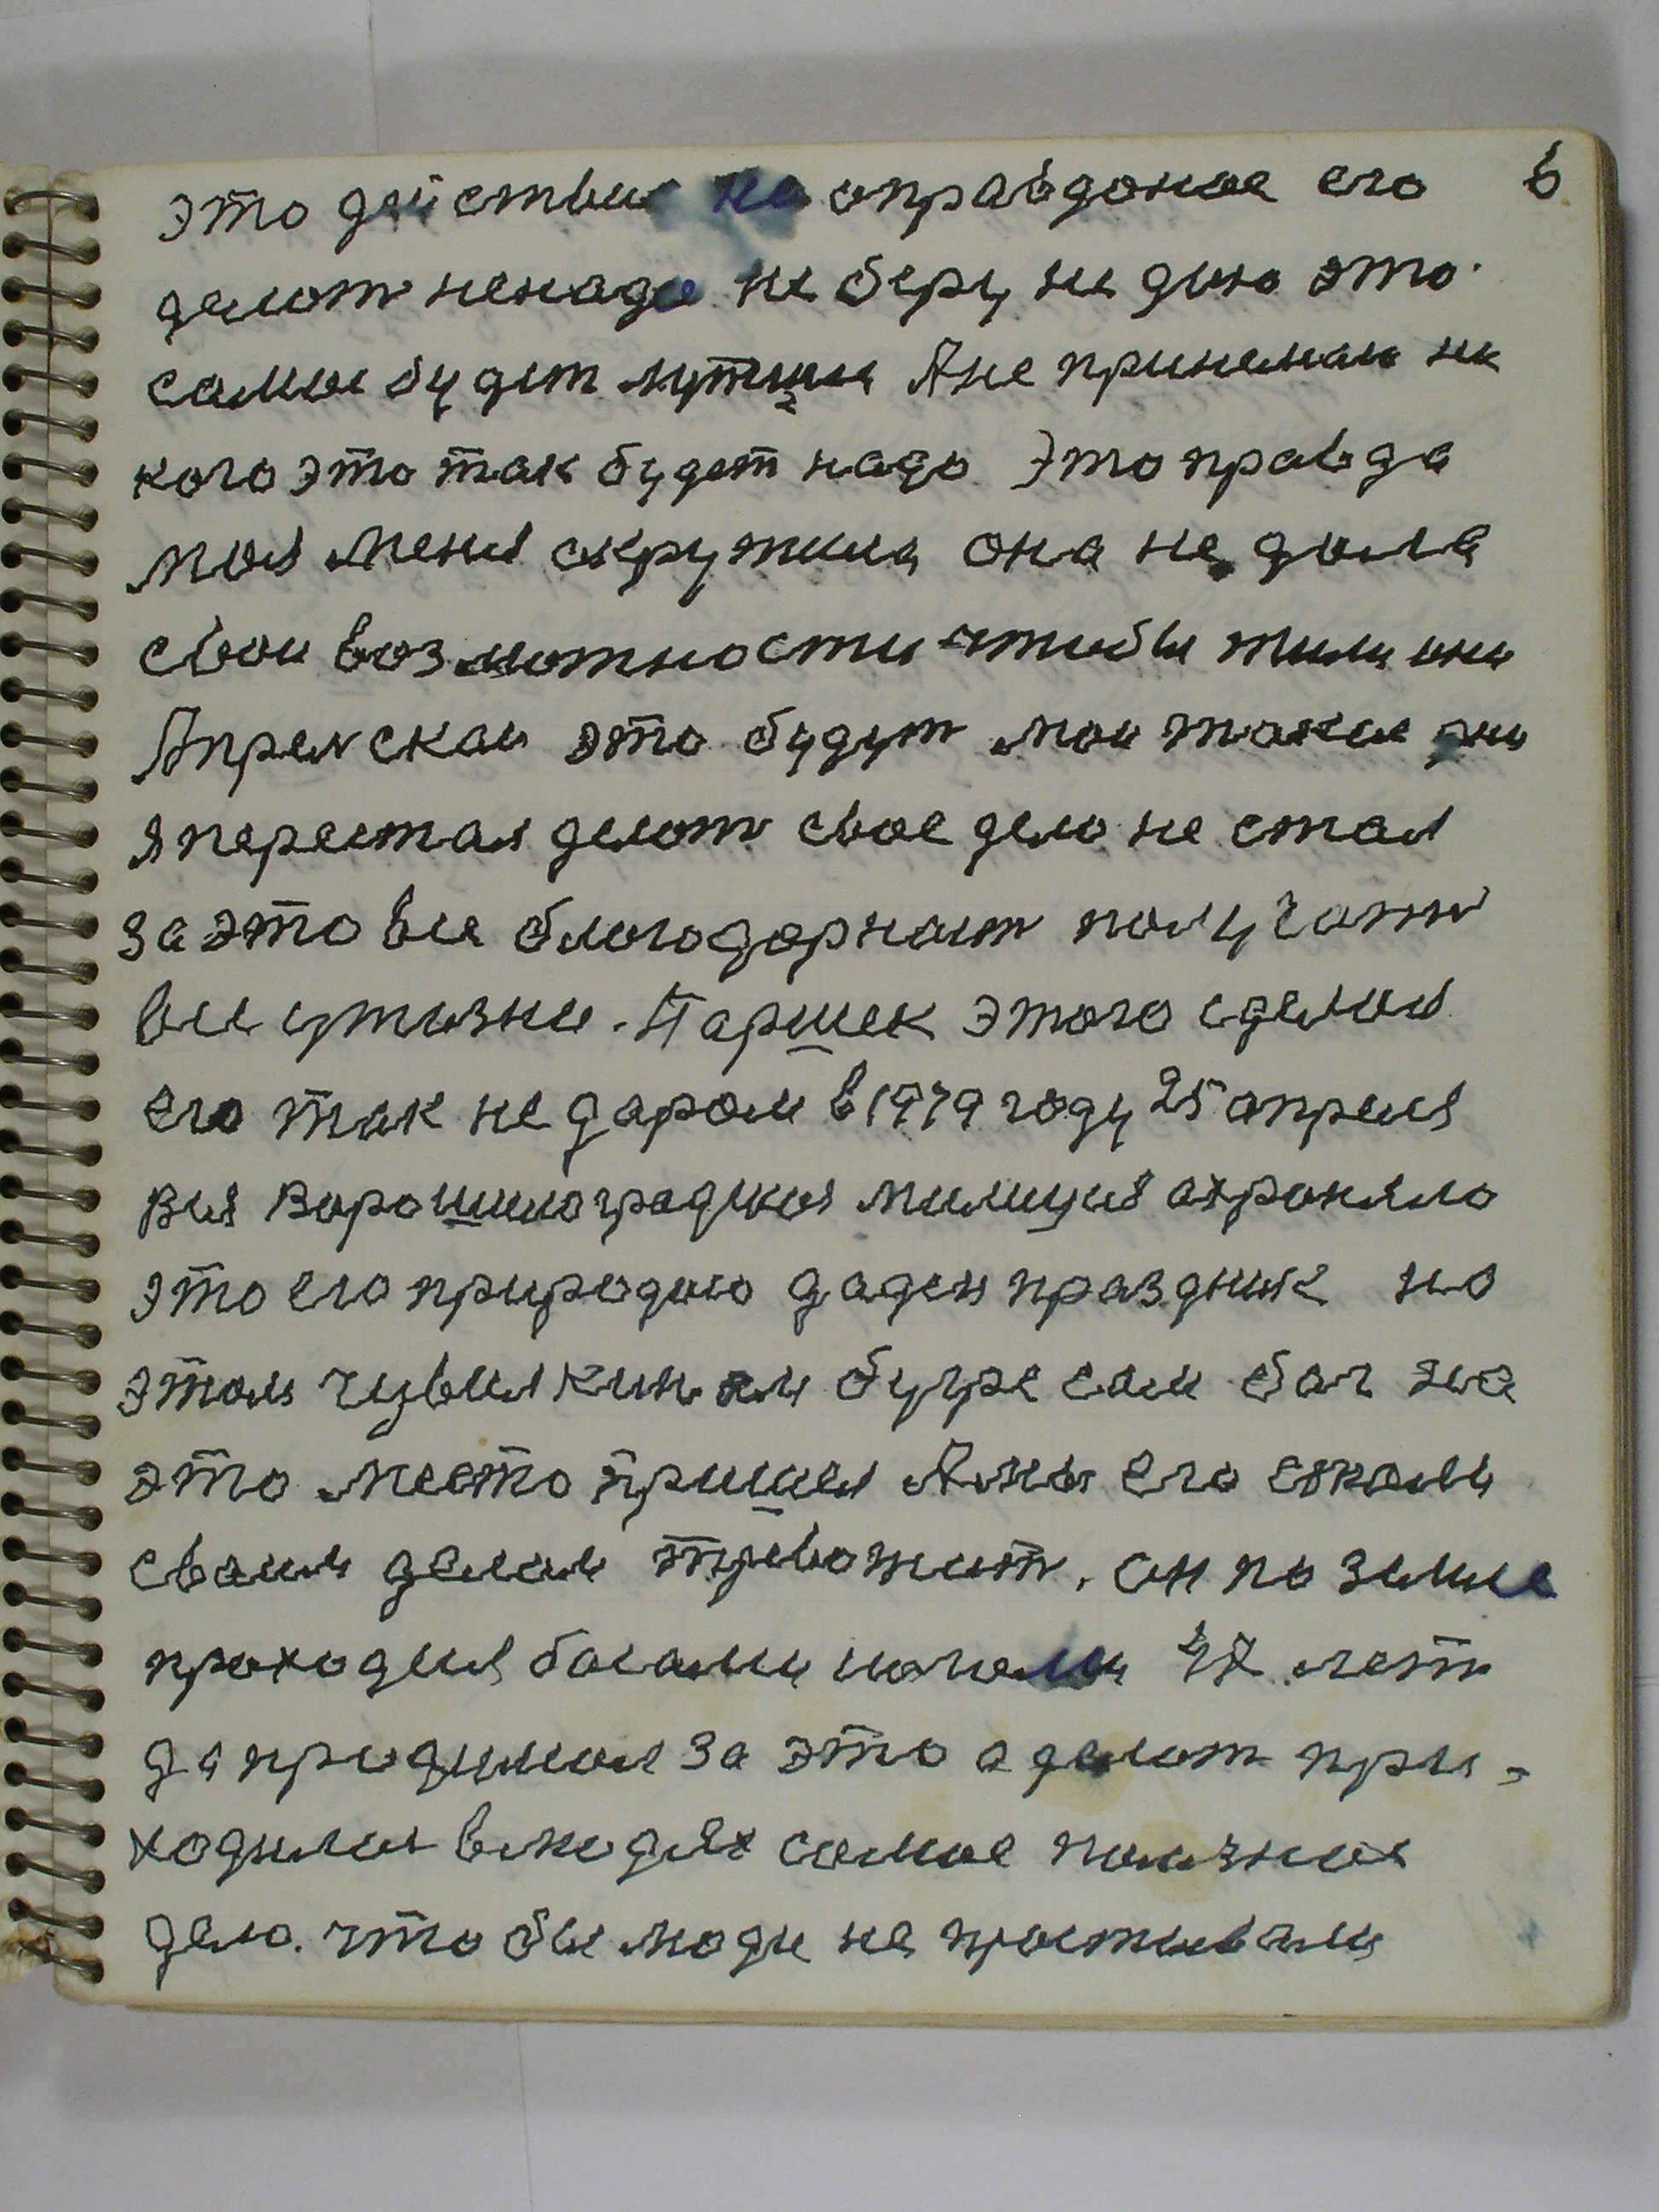 это действие не оправданое его 6
делоть ненадо не беру не даю это
самое будет лутшии Я не принемаю не
кого это так будет надо Это правда
моя меня окружила она не дала
свои возможности чтобы жили они
Апрелская это будут мои такие дни
я перестал делоть свое дело не стал
за это все благодарност получать
все у жизни. Паршек этого сделал
его так не даром в 1979 году 25 апреля
вся Ворошилоградская милиция охроняло
это его природою даден праздник на
этом чувилкином бугре сам бог на
это место пришел Яны его своими
своим делам тревожит. он по земле
проходил босами ногами 47 лет
да продумал за это а делоть при-
ходилось в людях самое полезное
дело. что бы люди не простывали